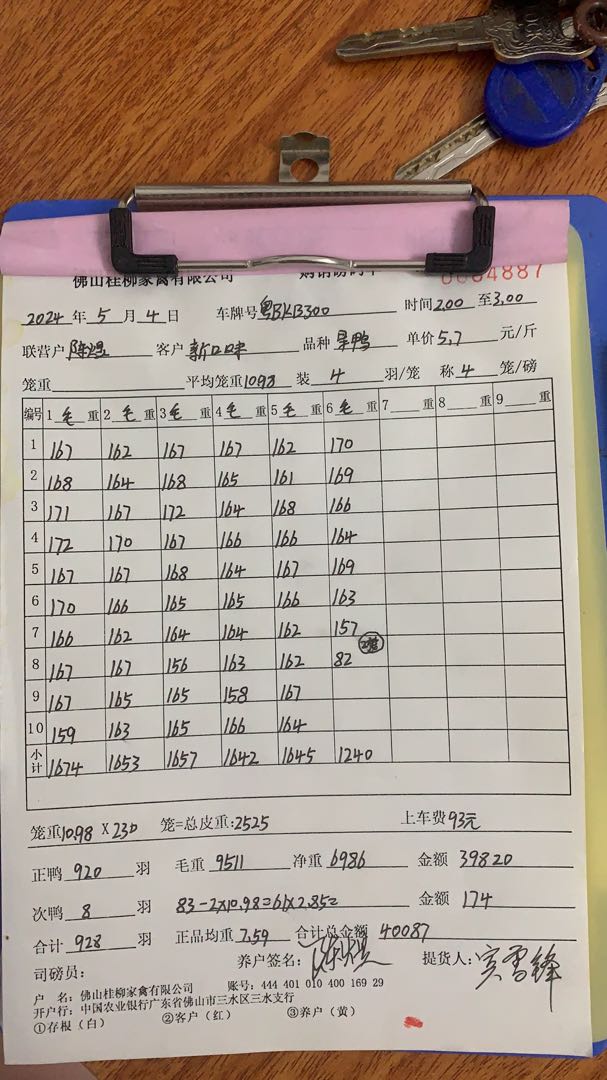 佛山桂柳家禽有限公司 购销磅码单 0004887
2024 年 5 月 4 日 车牌号 粤BKB300 时间 2.00 至 3.00
联营户 陈煜 客户 新口味 品种 呆鸭 单价 5.7 元/斤
笼重 平均笼重 1098 装 4 羽/笼 称 4 笼/磅
编号 1 毛 重 2 毛 重 3 毛 重 4 毛 重 5 毛 重 6 毛 重 7 重 8 重 9 重
1 167 162 167 167 162 170
2 168 164 168 165 161 169
3 171 167 172 164 168 166
4 172 170 167 166 166 164
5 167 167 168 164 167 169
6 170 166 165 165 166 163
7 166 162 164 164 162 157
8 167 167 156 163 162 82
9 167 165 165 158 167
10 159 163 165 166 164
小计 1674 1653 1657 1642 1645 1240
笼重 10.98 X 230 笼=总皮重: 2525 上车费 93元
正鸭 920 羽 毛重 9511 净重 6986 金额 39820
次鸭 8 羽 83-2X10.98=61X2.85= 金额 174
合计 928 羽 正品均重 7.59 合计总金额 40087
司磅员: 养户签名: 陈煜 提货人:
户 名: 佛山桂柳家禽有限公司 账号: 444 401 010 400 169 29
开户行: 中国农业银行广东省佛山市三水区三水支行
①存根（白） ②客户（红） ③养户（黄）